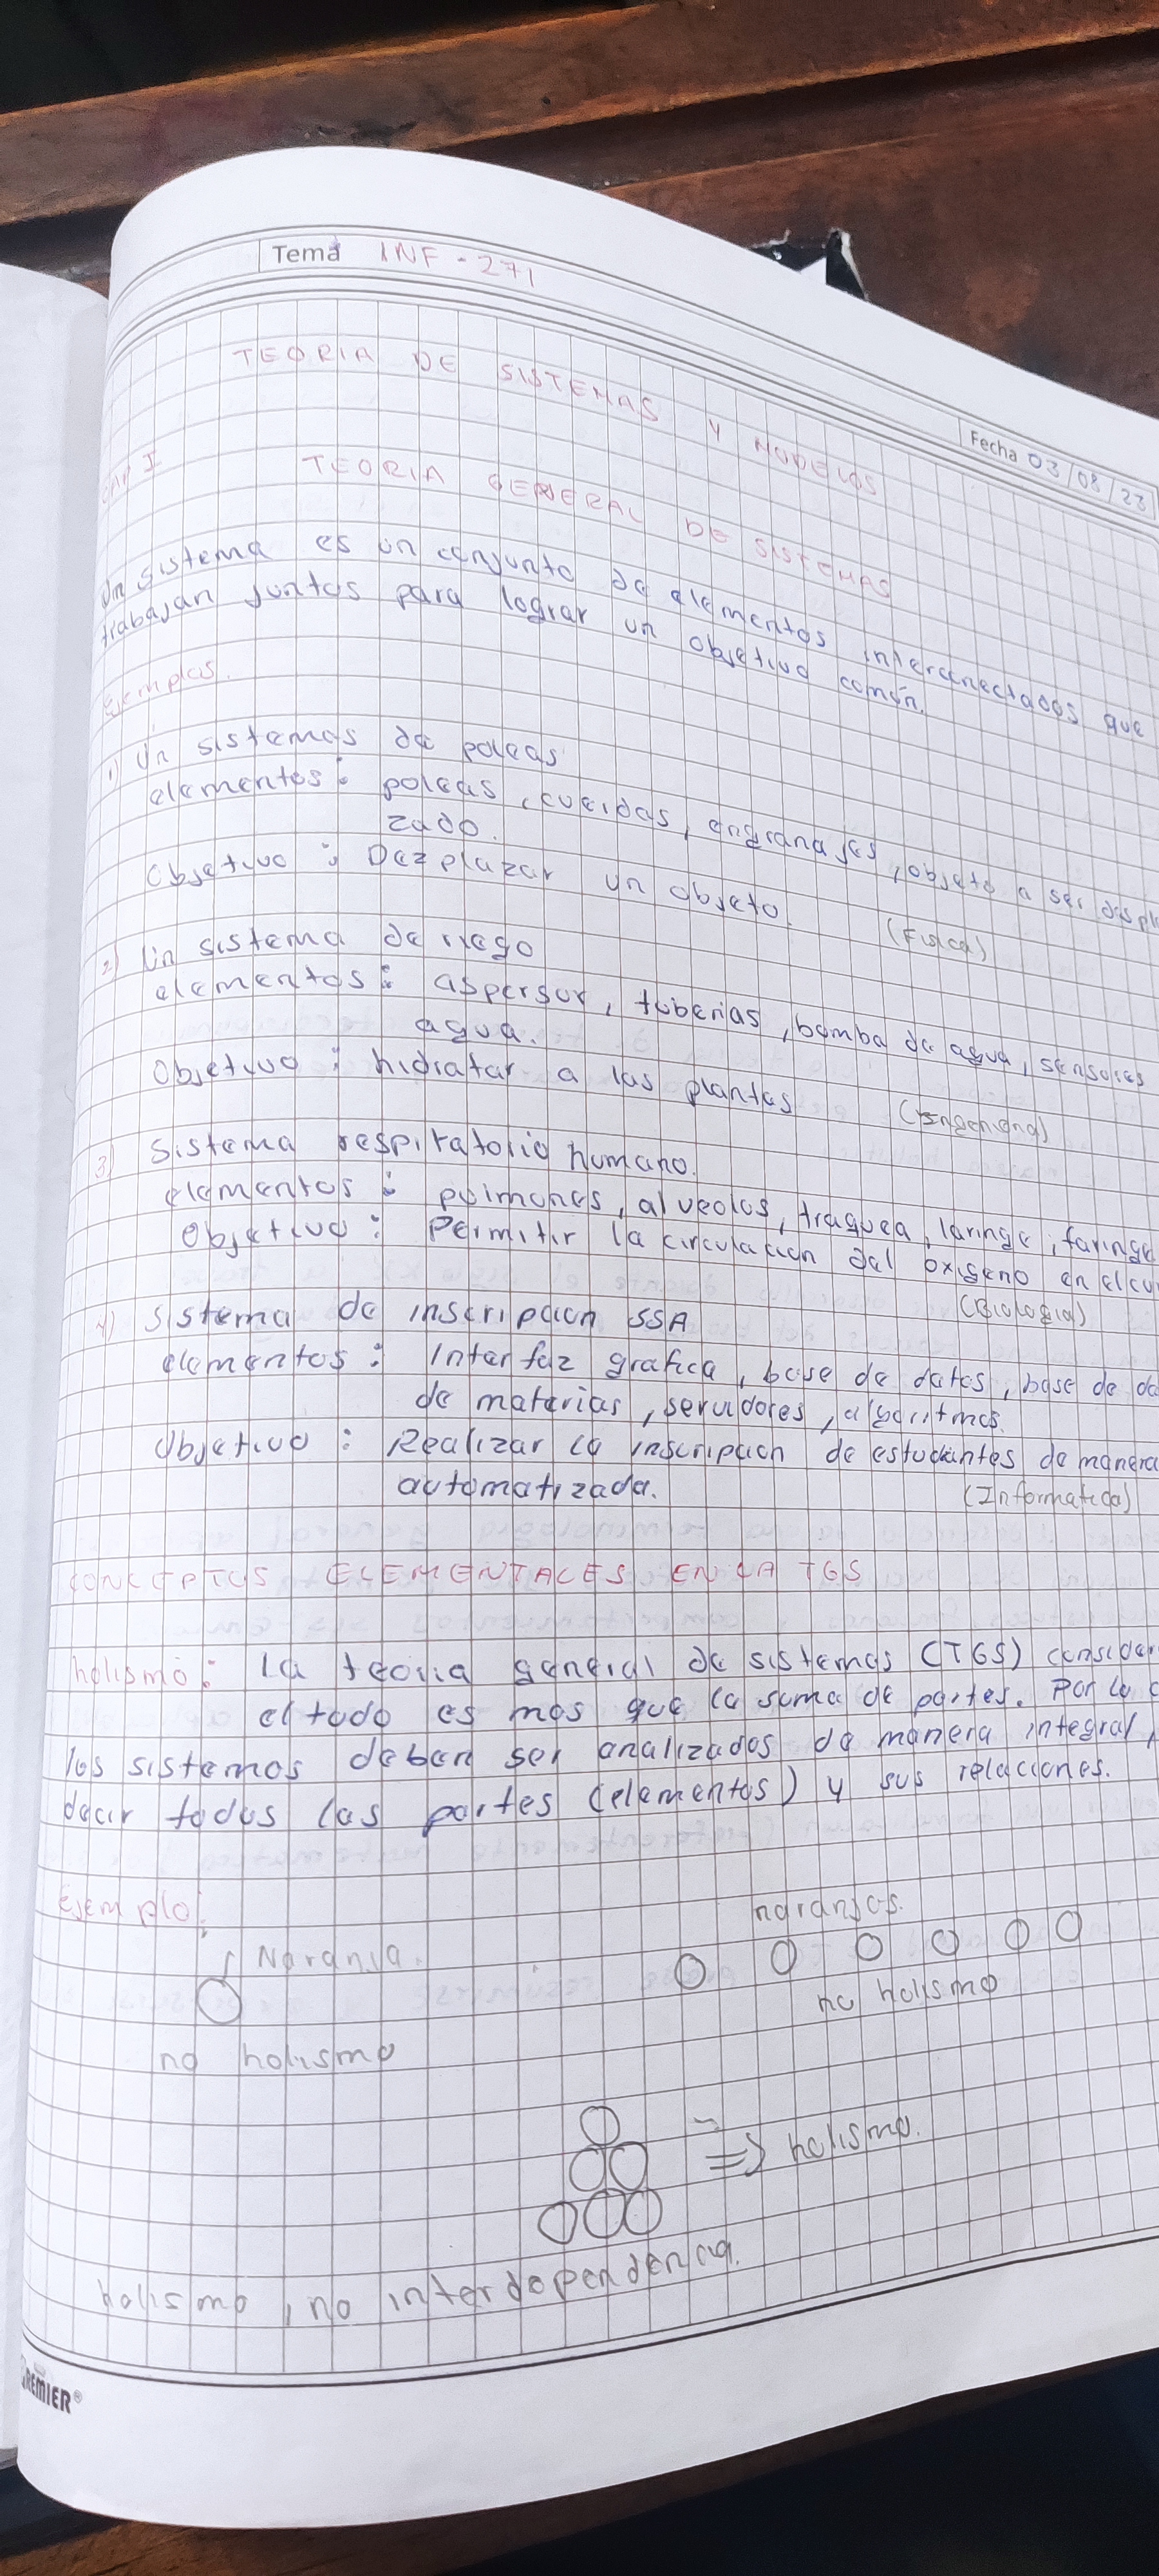 Tema INF - 271
Fecha 03/08/23
TEORIA DE SISTEMAS Y MODELOS
CAP I TEORIA GENERAL DE SISTEMAS
Un sistema es un conjunto de elementos interconectados que
trabajan juntos para lograr un objetivo común.
Ejemplos.
1) Un sistemas de poleas
elementos: poleas, cuerdas, engranajes, objeto a ser displ
zado.
Objetivo: Dezplazar un objeto. (Fisica)
2) Un sistema de riego
elementos: aspersor, tuberias, bomba de agua, sensores
agua.
Objetivo: hidratar a las plantas (Ingenieria)
3) Sistema respiratorio humano.
elementos: pulmones, alveolos, traquea, laringe, faringe
Objetivo: Permitir la circulacion del oxigeno en el cu
(Biologia)
4) Sistema de inscripcion SSA
elementos: Interfaz grafica, base de datos, base de da
de materias, servidores, algoritmos.
Objetivo: Realizar la inscripcion de estudiantes de manera
automatizada. (Informatica)
CONCEPTOS ELEMENTALES EN LA TGS
holismo: la teoria general de sistemas (TGS) consider
el todo es mas que la suma de partes. Por lo
los sistemas deben ser analizados de manera integral,
decir todos las partes (elementos) y sus relaciones.
Ejemplo:
1 Naranja.
naranjas.
no holismo
no holismo
=> holismo.
holismo, no interdependencia.
PREMIER®